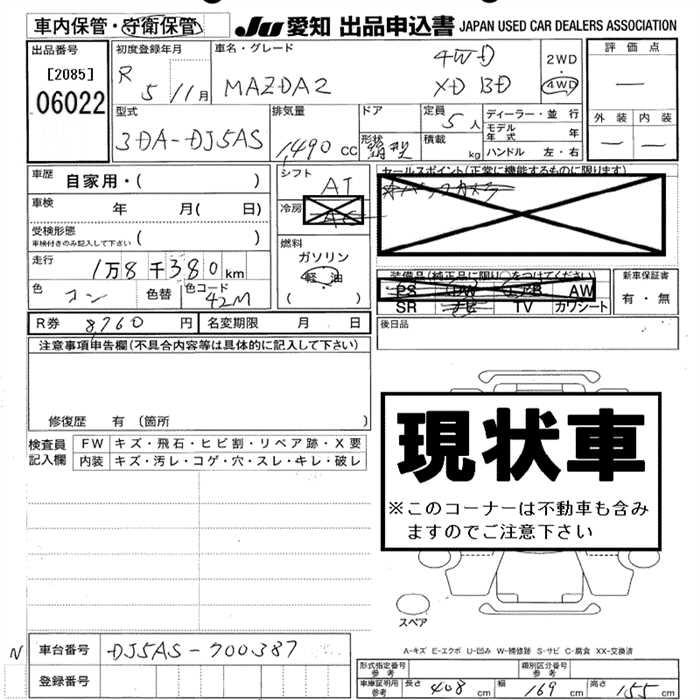 車内保管・守衛保管
JU 愛知 出品申込書 JAPAN USED CAR DEALERS ASSOCIATION
出品番号
[2085]
06022
初度登録年月
R 5 11月
車名・グレード
MAZDA2
4WD
XD BD
2WD
・
4WD
評価点
—
外装 内装
— —
型式
3DA-DJ5AS
排気量
1,490 cc
ドア
形状
箱型
定員
5人
積載
kg
ディーラー・並行
モデル年式 年
ハンドル 左・右
車歴
自家用・( )
車検
年 月( 日)
受検形態
車検付きのみ記入して下さい ( )
走行
1万8千380km
色
コン
色替
色コード
42M
シフト
AT
冷房
AC
燃料
ガソリン
軽・油
( )
セールスポイント(正常に機能するものに限ります)
装備品(純正品に限り○をつけてください)
PS PW エアB AW
SR ナビ TV カワシート
新車保証書
有・無
R券 8,760 円
名変期限 月 日
後日品
注意事項申告欄(不具合内容等は具体的に記入して下さい)
修復歴 有(箇所 )
検査員
記入欄
FW キズ・飛石・ヒビ割・リペア跡・X要
内装 キズ・汚レ・コゲ・穴・スレ・キレ・破レ
現状車
※このコーナーは不動車も含み
ますのでご注意下さい
スペア
A-キズ E-エクボ U-凹み W-補修跡 S-サビ C-腐食 XX-交換済
N
車台番号 DJ5AS-700387
登録番号
形式指定番号
参考
類別区分番号
参考
車庫証明用
参考
長さ 408 cm
幅 169 cm
高さ 155 cm